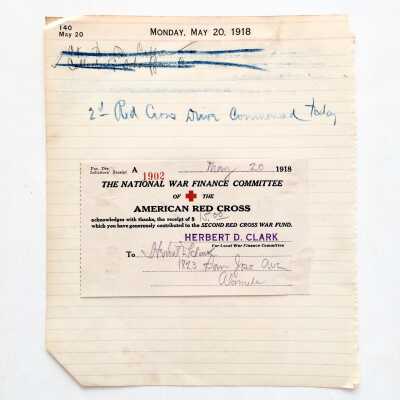 140
May 20
MONDAY, MAY 20, 1918
2d Red Cross Drive Commenced today
A
1902
May 20 1918
THE NATIONAL WAR FINANCE COMMITTEE
OF THE
AMERICAN RED CROSS
acknowledges with thanks, the receipt of $
which you have generously contributed to the SECOND RED CROSS WAR FUND.
HERBERT D. CLARK
For Local War Finance Committee
To Herbert D Clark
1823 San Jose Ave
Alameda